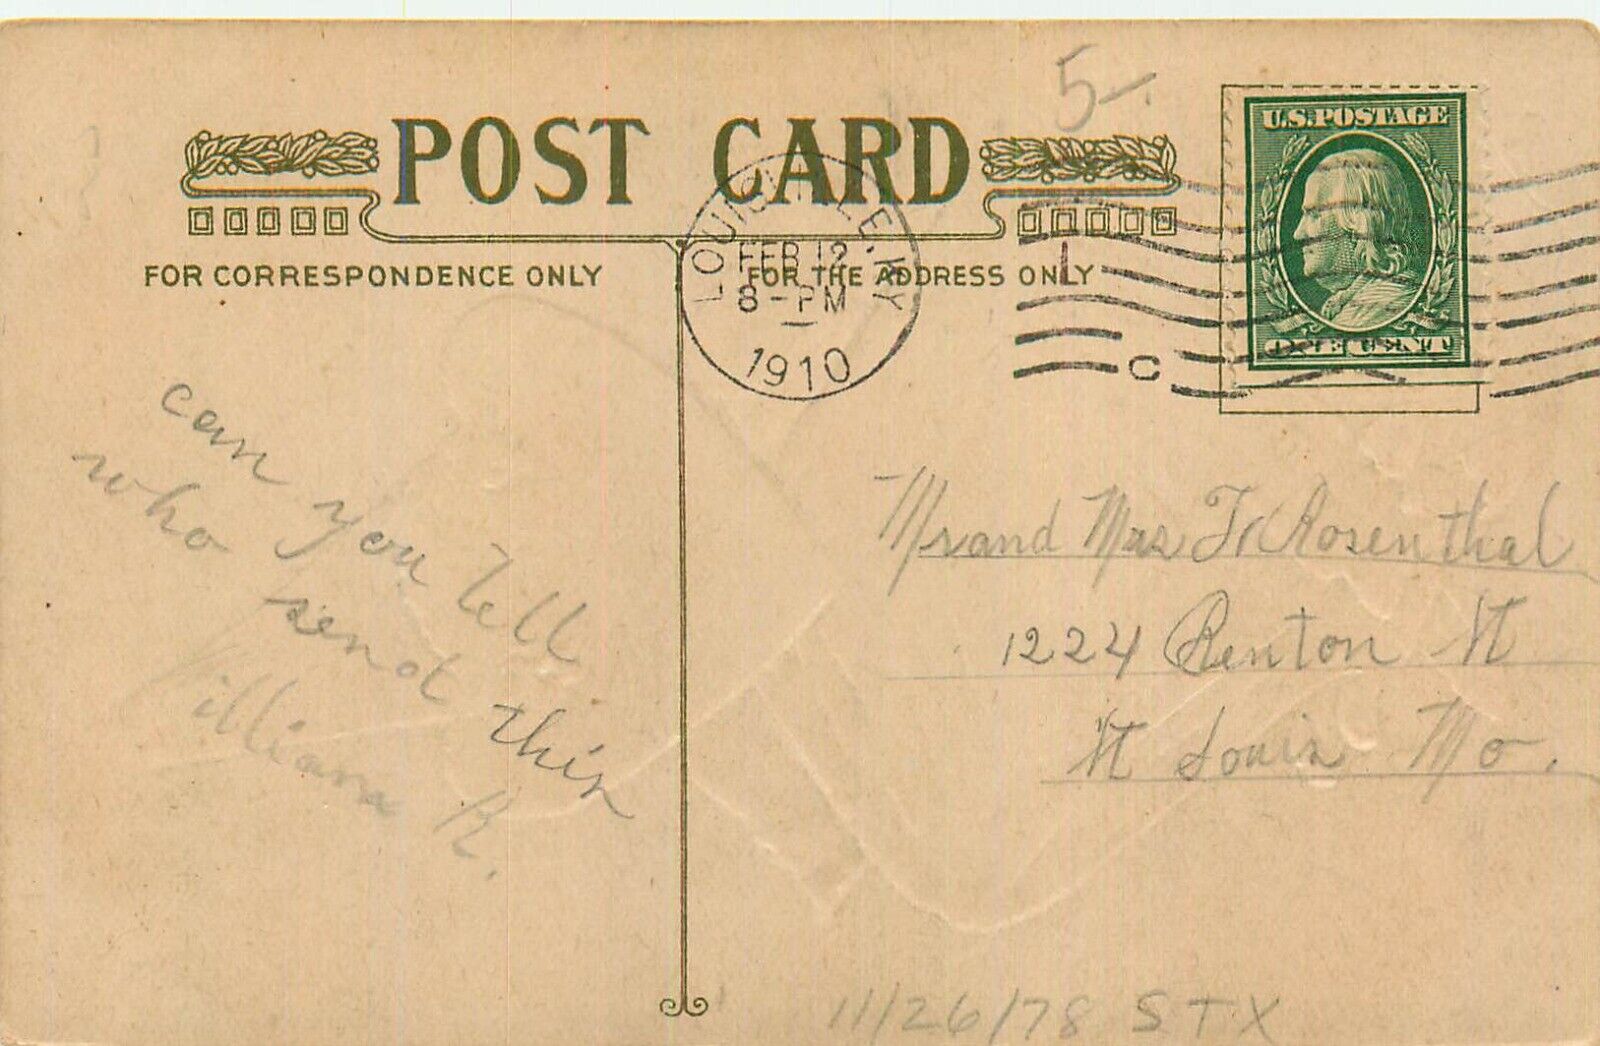 5-.
POST CARD
U.S.POSTAGE
LOUISVILLE, KY
FEB 12
8-PM
1910
L
C
ONE CENT
FOR CORRESPONDENCE ONLY
FOR THE ADDRESS ONLY
can you tell
who send this
illiana R.
Mr and Mrs F Rosenthal
1224 Renton St
St Louis Mo.
11/26/78 STX